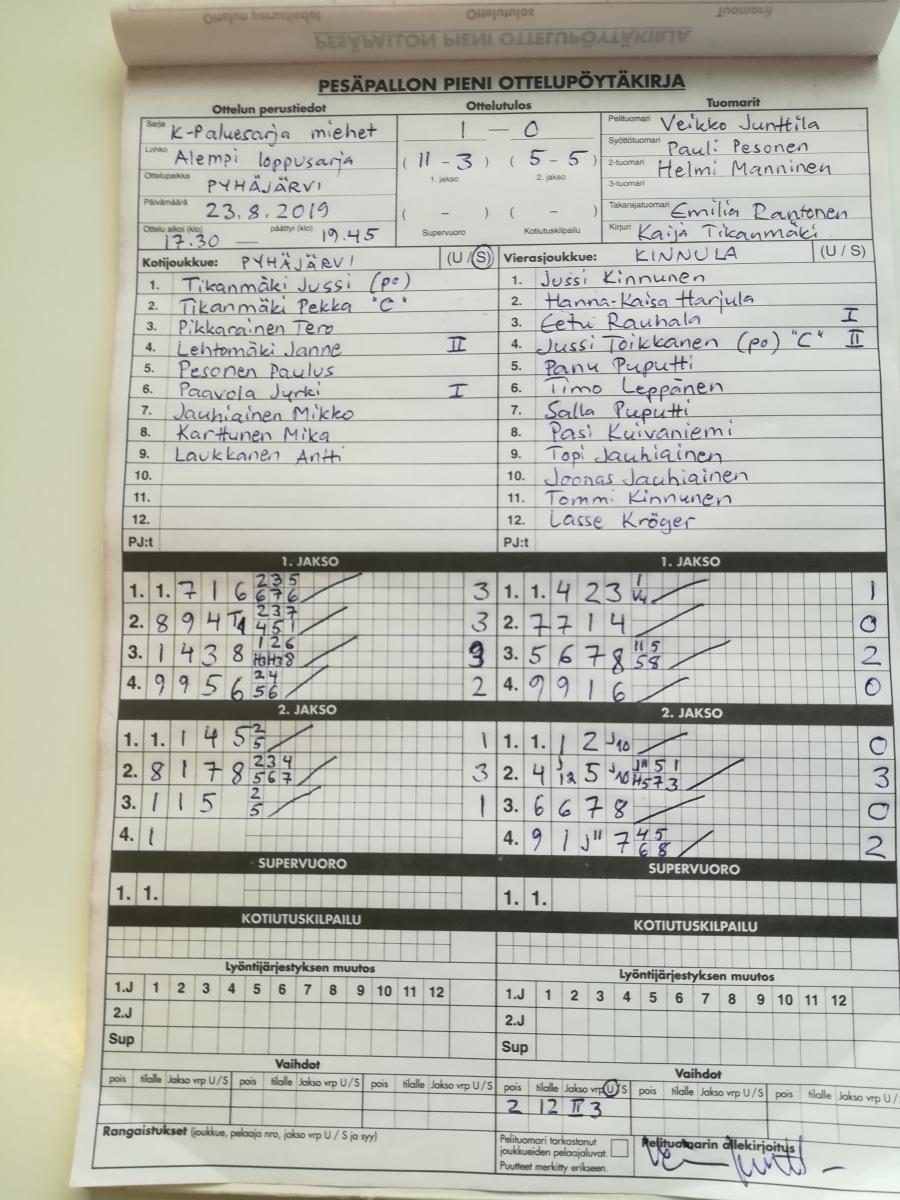 PESÄPALLON PIENI OTTELUPÖYTÄKIRJA
Ottelun perustiedot Ottelutulos Tuomarit
Sarja K-Paluesarja miehet
Lohko Alempi loppusarja
Ottelupaikka PYHÄJÄRVI
Päivämäärä 23.8.2019
Ottelu alkoi (klo) 17.30 — päättyi (klo) 19.45
1 — 0
(11 - 3) (5 - 5)
1. jakso 2. jakso
( - ) ( - )
Supervuoro Kotiutuskilpailu
Pelituomari Veikko Junttila
Syöttötuomari Pauli Pesonen
2-tuomari Helmi Manninen
3-tuomari
Takarajatuomari Emilia Rantonen
Kirjuri Kaija Tikanmäki
Kotijoukkue: PYHÄJÄRVI (U / S)
1. Tikanmäki Jussi (po)
2. Tikanmäki Pekka "C"
3. Pikkarainen Tero
4. Lehtomäki Janne II
5. Pesonen Paulus
6. Paavola Jyrki I
7. Jauhiainen Mikko
8. Karttunen Mika
9. Laukkanen Antti
10.
11.
12.
PJ:t
Vierasjoukkue: KINNULA (U / S)
1. Jussi Kinnunen
2. Hanna-Kaisa Harjula
3. Eetu Rauhala I
4. Jussi Toikkanen (po) "C" II
5. Panu Puputti
6. Timo Leppänen
7. Salla Puputti
8. Pasi Kuivaniemi
9. Topi Jauhiainen
10. Joonas Jauhiainen
11. Tommi Kinnunen
12. Lasse Kröger
PJ:t
1. JAKSO
1. 1. 7 1 6 2 3 5 6 7 6 3
2. 8 9 4 2 3 7 4 5 1 3
3. 1 4 3 8 1 2 6 8
4. 9 9 5 6 2 4 5 6 2
1. JAKSO
1. 1. 4 2 3 1 1
2. 7 7 1 4 0
3. 5 6 7 8 11 5 5 8 2
4. 9 9 1 6 0
2. JAKSO
1. 1. 1 4 5 2 5 1
2. 8 1 7 8 2 3 4 5 6 7 3
3. 1 1 5 2 5 1
4. 1
2. JAKSO
1. 1. 1 2 J10 0
2. 4 J12 5 J10 J11 5 1 5 7 3 3
3. 6 6 7 8 0
4. 9 1 J11 7 4 5 6 8 2
SUPERVUORO
1. 1.
SUPERVUORO
1. 1.
KOTIUTUSKILPAILU
KOTIUTUSKILPAILU
Lyöntijärjestyksen muutos
1.J 1 2 3 4 5 6 7 8 9 10 11 12
2.J
Sup
Lyöntijärjestyksen muutos
1.J 1 2 3 4 5 6 7 8 9 10 11 12
2.J
Sup
Vaihdot
pois tilalle Jakso vrp U / S pois tilalle Jakso vrp U / S pois tilalle Jakso vrp U / S
Vaihdot
pois tilalle Jakso vrp U / S pois tilalle Jakso vrp U / S pois tilalle Jakso vrp U /
2 12 II 3
Rangaistukset (joukkue, pelaaja nro, jakso vrp U / S ja syy)
Pelituomari tarkastanut
joukkueiden pelaajaluvat.
Puutteet merkitty erikseen.
Pelituomarin allekirjoitus